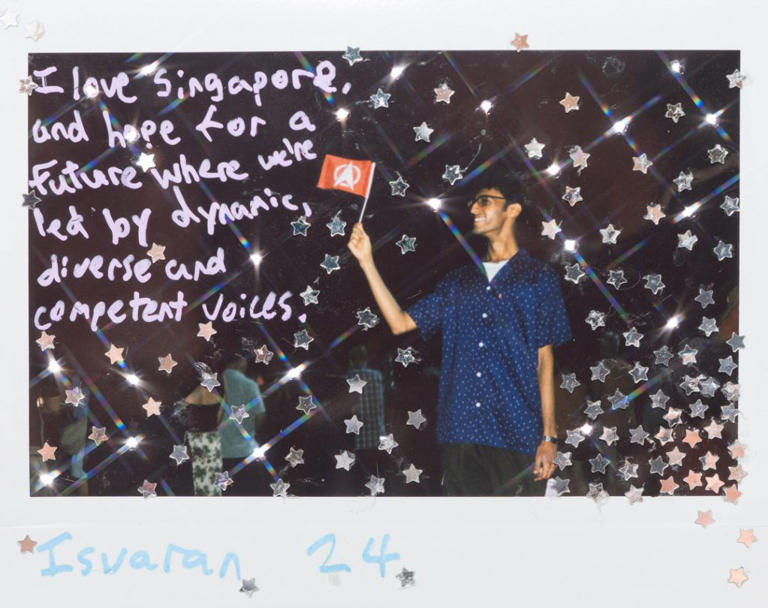 I love Singapore,
and hope for a
future where we're
led by dynamic,
diverse and
competent voices.
Isvaran 24